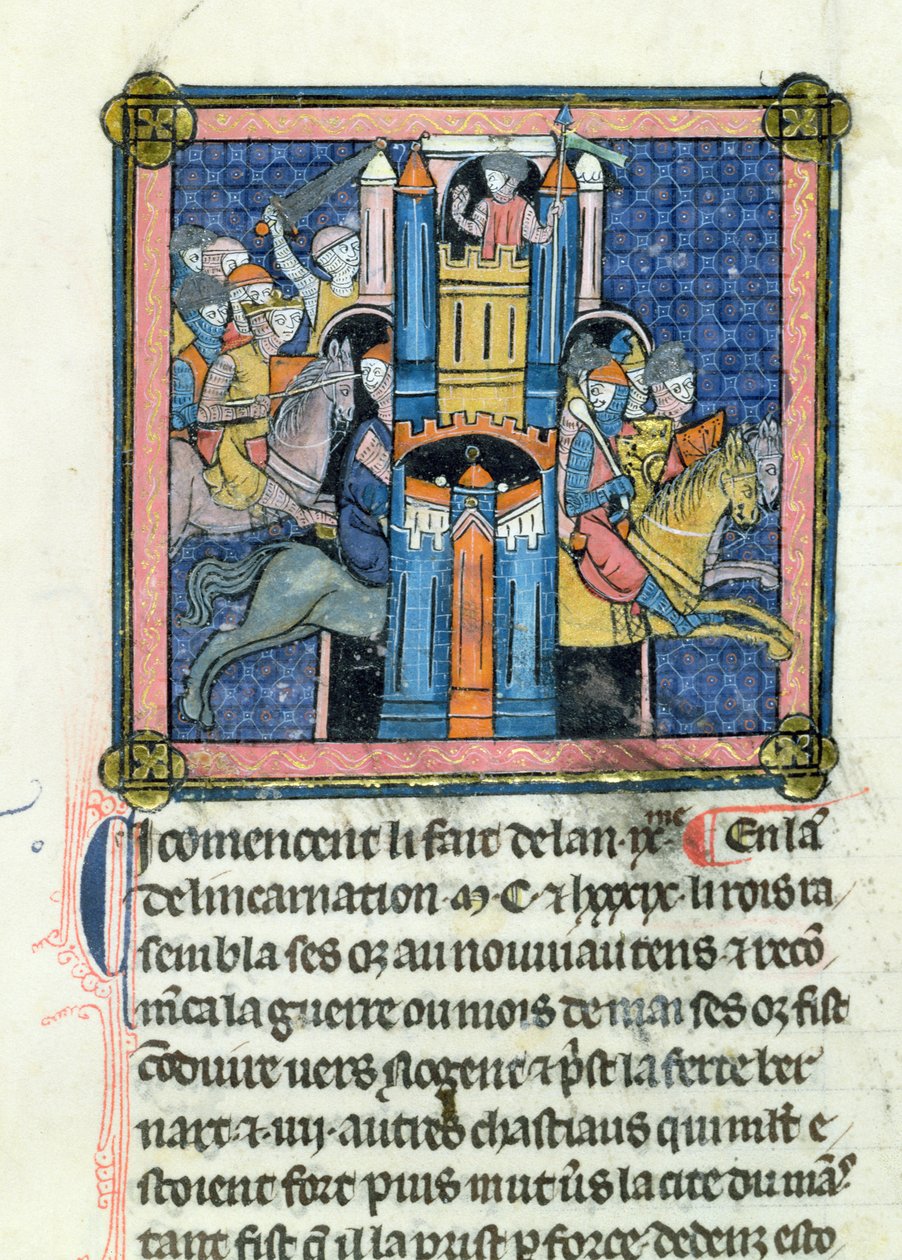 Ci comencent li fait de lan .ixme. ¶ En lā
de lincarnation .M. C. ⁊ lxxxix. li rois ra
sembla ses oz au nouuiau tens. ⁊ recō
m̄ca la guerre ou mois de mai ses oz fist
cōduire uers Nogent ⁊ p̄st la ferte ber
nart. ⁊ .iiij. autres chastiaus qui mlt̄ e
stoient fort puis mut ūs la cite du mās
tant fist q̄ il la prist p force. dedenz esto